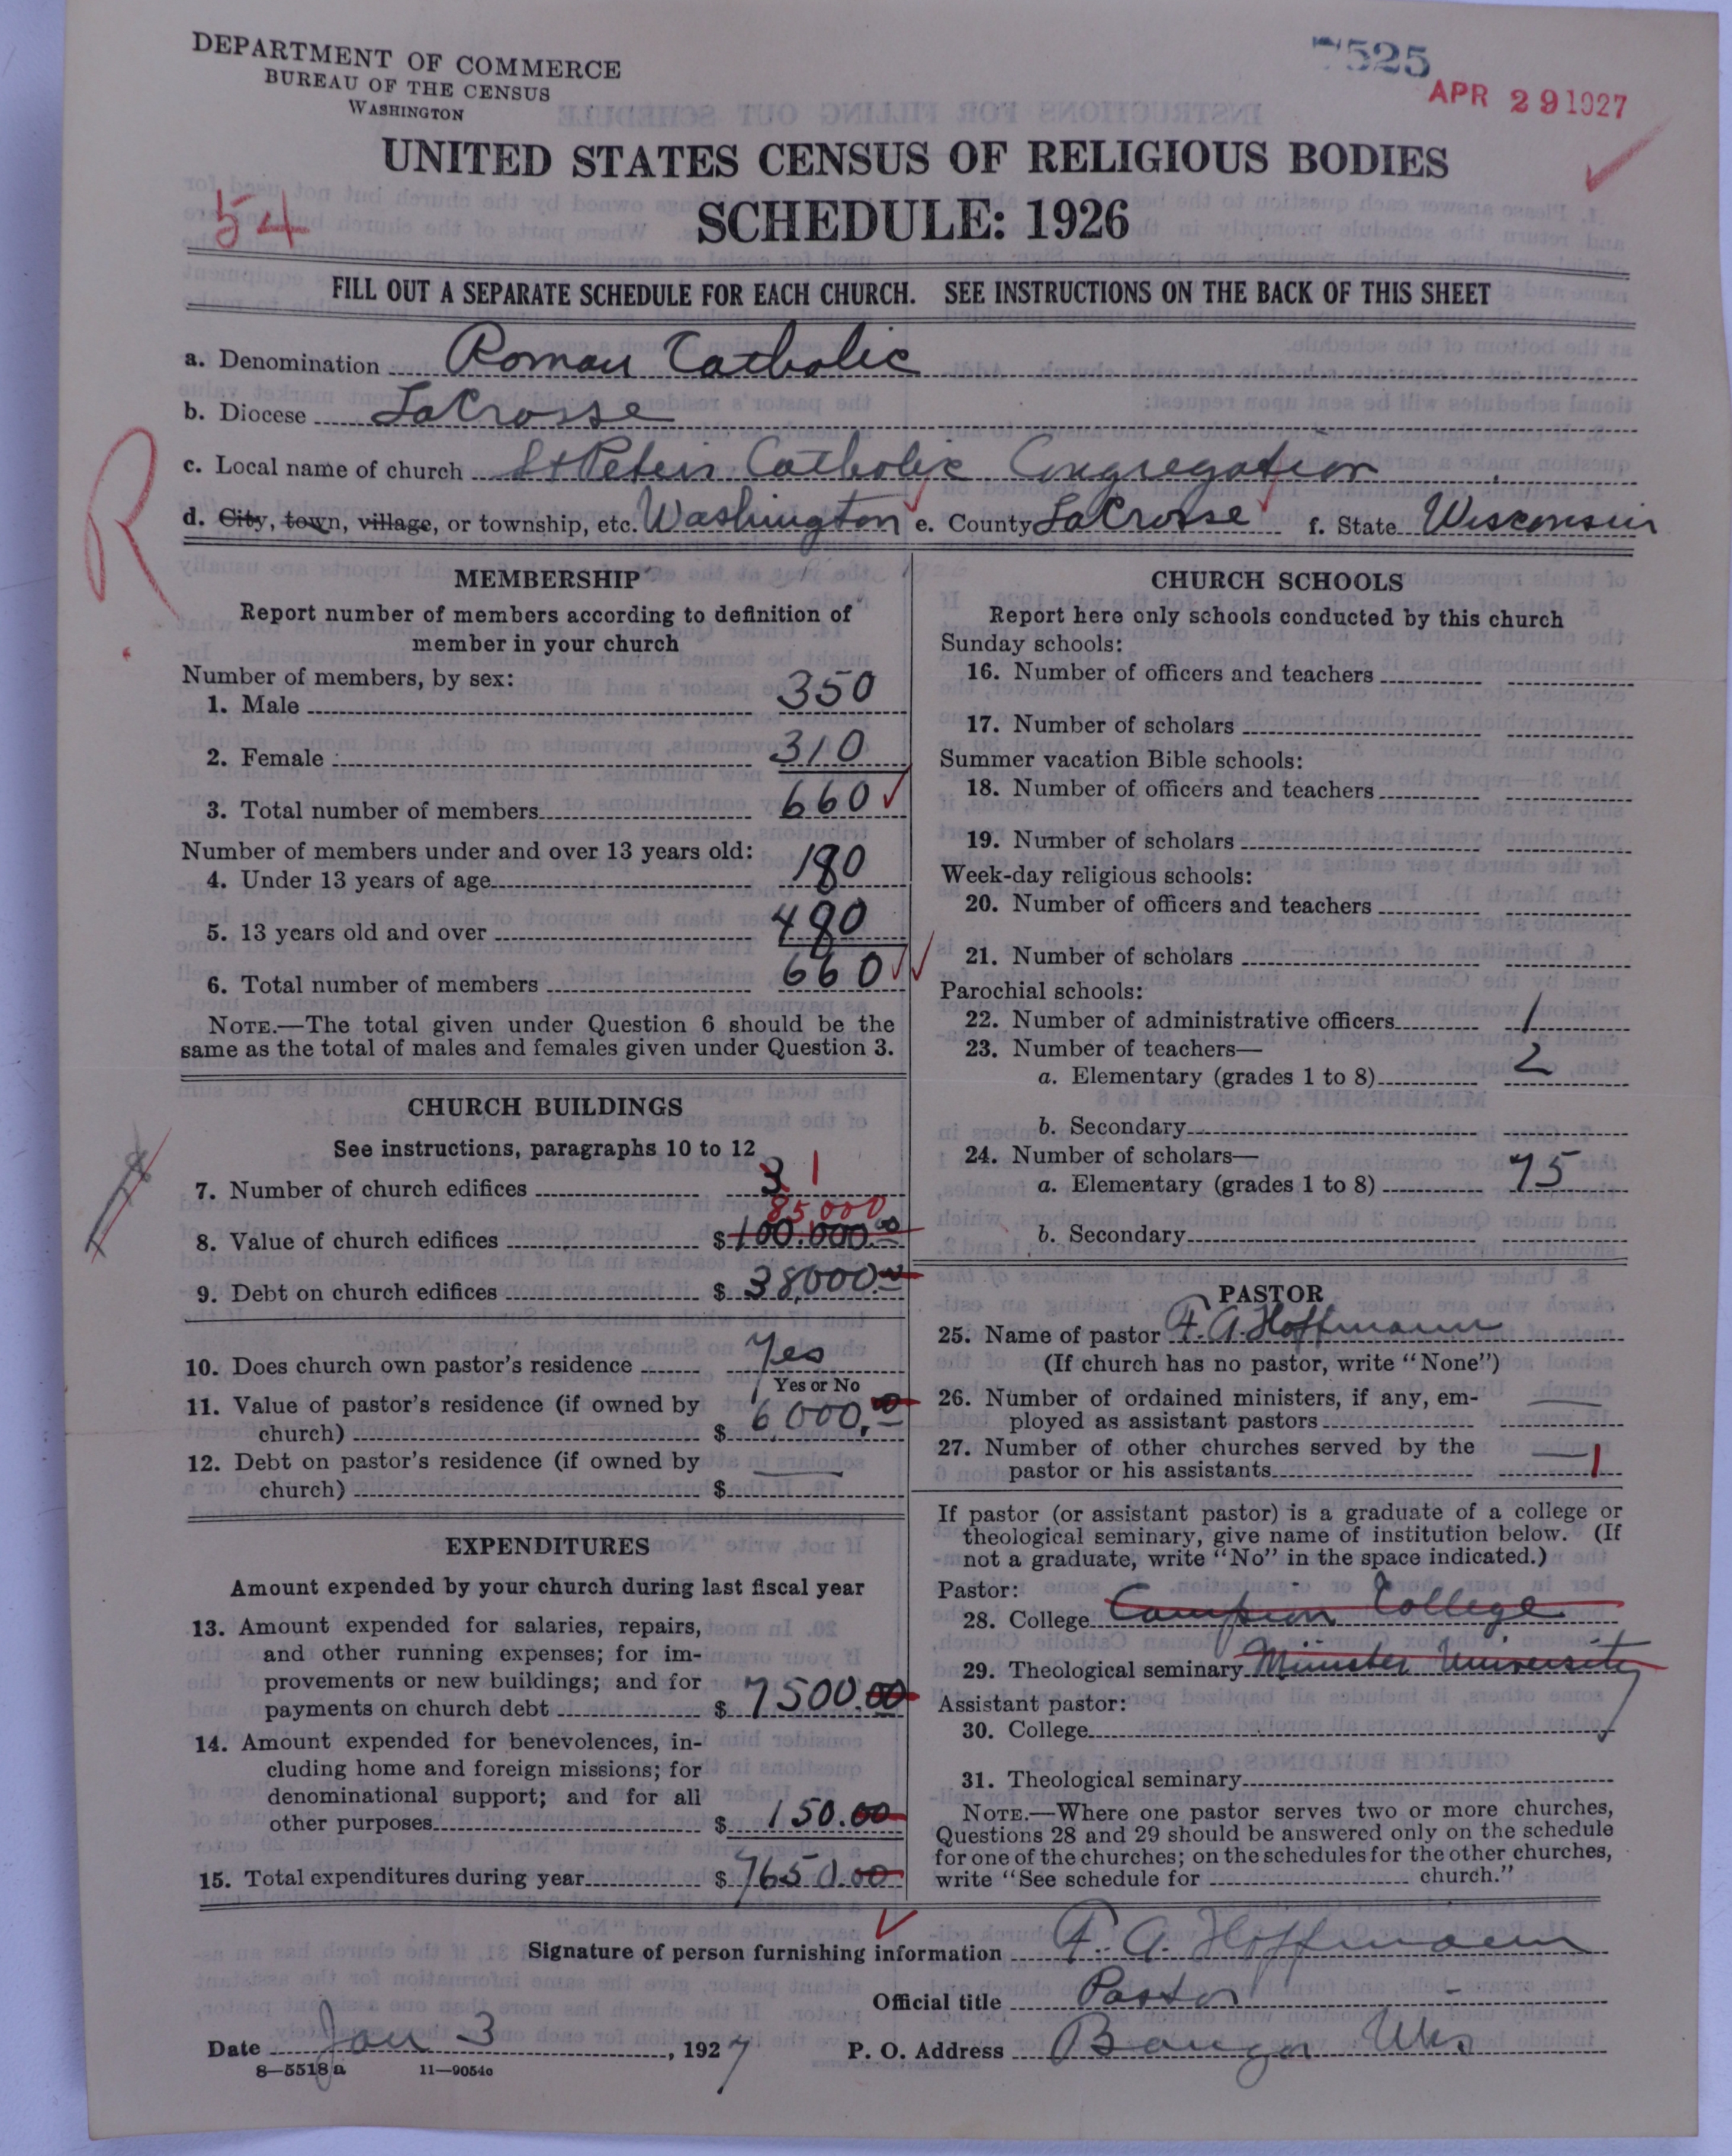 DEPARTMENT OF COMMERCE
BUREAU OF THE CENSUS
WASHINGTON
7525
APR 29 1927
UNITED STATES CENSUS OF RELIGIOUS BODIES
54
SCHEDULE: 1926
FILL OUT A SEPARATE SCHEDULE FOR EACH CHURCH. SEE INSTRUCTIONS ON THE BACK OF THIS SHEET
a. Denomination Roman Catholic
b. Diocese LaCrosse
R
c. Local name of church St Peters Catholic Congregation
d. City, town, village, or township, etc. Washington e. County LaCrosse f. State Wisconsin
MEMBERSHIP
Report number of members according to definition of
member in your church
Number of members, by sex:
1. Male 350
2. Female 310
3. Total number of members 660
Number of members under and over 13 years old:
4. Under 13 years of age 180
5. 13 years old and over 480
6. Total number of members 660
NOTE.—The total given under Question 6 should be the
same as the total of males and females given under Question 3.
CHURCH BUILDINGS
See instructions, paragraphs 10 to 12
7. Number of church edifices 3 1
85000
8. Value of church edifices $ 100.000.00
9. Debt on church edifices $ 38,000.00
10. Does church own pastor's residence Yes
Yes or No
11. Value of pastor's residence (if owned by
church) $ 6000.00
12. Debt on pastor's residence (if owned by
church) $ —
EXPENDITURES
Amount expended by your church during last fiscal year
13. Amount expended for salaries, repairs,
and other running expenses; for im-
provements or new buildings; and for
payments on church debt $ 7500.00
14. Amount expended for benevolences, in-
cluding home and foreign missions; for
denominational support; and for all
other purposes $ 150.00
15. Total expenditures during year $ 7650.00
CHURCH SCHOOLS
Report here only schools conducted by this church
Sunday schools:
16. Number of officers and teachers
17. Number of scholars
Summer vacation Bible schools:
18. Number of officers and teachers
19. Number of scholars
Week-day religious schools:
20. Number of officers and teachers
21. Number of scholars
Parochial schools:
22. Number of administrative officers 1
23. Number of teachers—
a. Elementary (grades 1 to 8) 2
b. Secondary
24. Number of scholars—
a. Elementary (grades 1 to 8) 75
b. Secondary
PASTOR
25. Name of pastor F. A. Hoffmann
(If church has no pastor, write "None")
26. Number of ordained ministers, if any, em-
ployed as assistant pastors —
27. Number of other churches served by the
pastor or his assistants — 1
If pastor (or assistant pastor) is a graduate of a college or
theological seminary, give name of institution below. (If
not a graduate, write "No" in the space indicated.)
Pastor:
28. College Campion College
29. Theological seminary Münster University
Assistant pastor:
30. College
31. Theological seminary
NOTE.—Where one pastor serves two or more churches,
Questions 28 and 29 should be answered only on the schedule
for one of the churches; on the schedules for the other churches,
write "See schedule for church."
Signature of person furnishing information F. A. Hoffmann
Official title Pastor
Date Jan 3, 1927
P. O. Address Bangor Wis
8—5518a 11—9054c